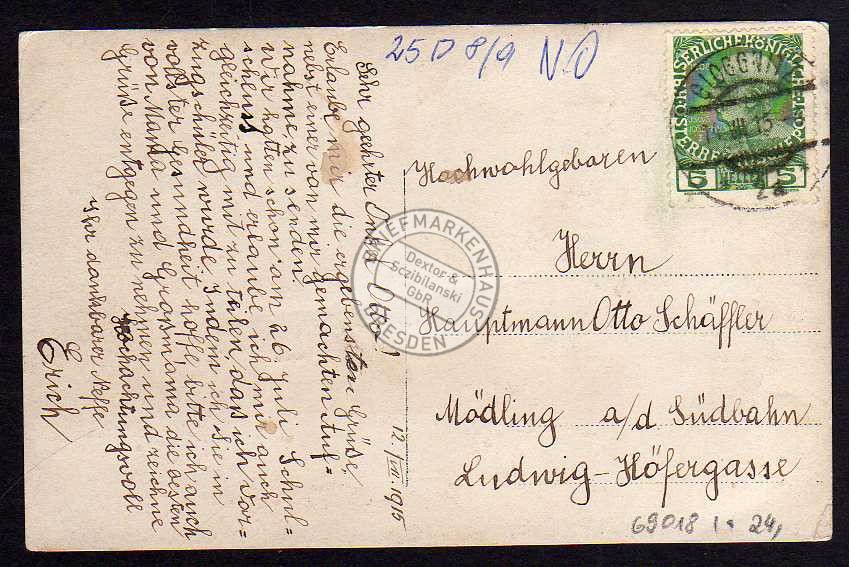 25 D 8/9 N.Ö
Sehr geehrter Onkel Otto!
Erlaube mir die ergebensten Grüße,
nebst einer von mir gemachten Auf-
nahme zu senden.
Wir hatten schon am 26 Juli Schul-
schluss und erlaube ich mir auch
gleichzeitig mit zu teilen, dass ich Vor-
zugschüler wurde. Indem ich Sie in
vollster Gesundheit hoffe, bitte ich auch
von Mama und Grosmama die besten
Grüße entgegen zu nehmen und zeichne
Hochachtungsvoll
Ihr dankbarer Neffe
Erich
12./VIII. 1915
Hochwohlgeboren
Herrn
Hauptmann Otto Schäffler
Mödling a/d Südbahn
Ludwig-Höfergasse
KAISERLICHE KÖNIGLICHE
ÖSTERR. POST
5 HELLER 5
GLOGGNITZ
VIII 15
2a
BRIEFMARKENHAUS
Dextor &
Sczibilanski
GbR
DRESDEN
69018 1. 24,